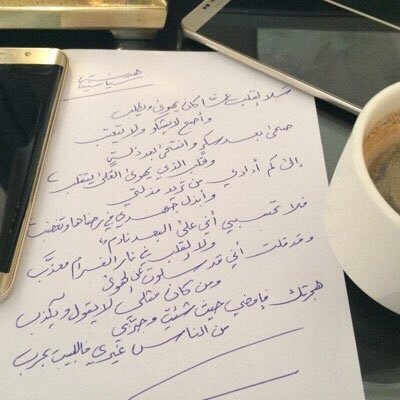 سلا القلب عمّا كان يهوى ويطلب
وأصبح لا يشكو ولا يتعتب
صحى بعد سكرٍ وانتخى بعد ذلةٍ
وقلب الذي يهوى العلى يتقلب
إلى كم أداري من تريد مذلتي
وأبذل جهدي في رضاها وتغضب
فلا تحسبي أني على البعد نادم
ولا القلب في نار الغرام معذّب
وقد قلت أني قد سلوت عن الهوى
ومن كان مثلي لا يقول ويكذب
هجرتك فامضي حيث شئتِ وجرّبي
من الناس غيري فاللبيب يجرب